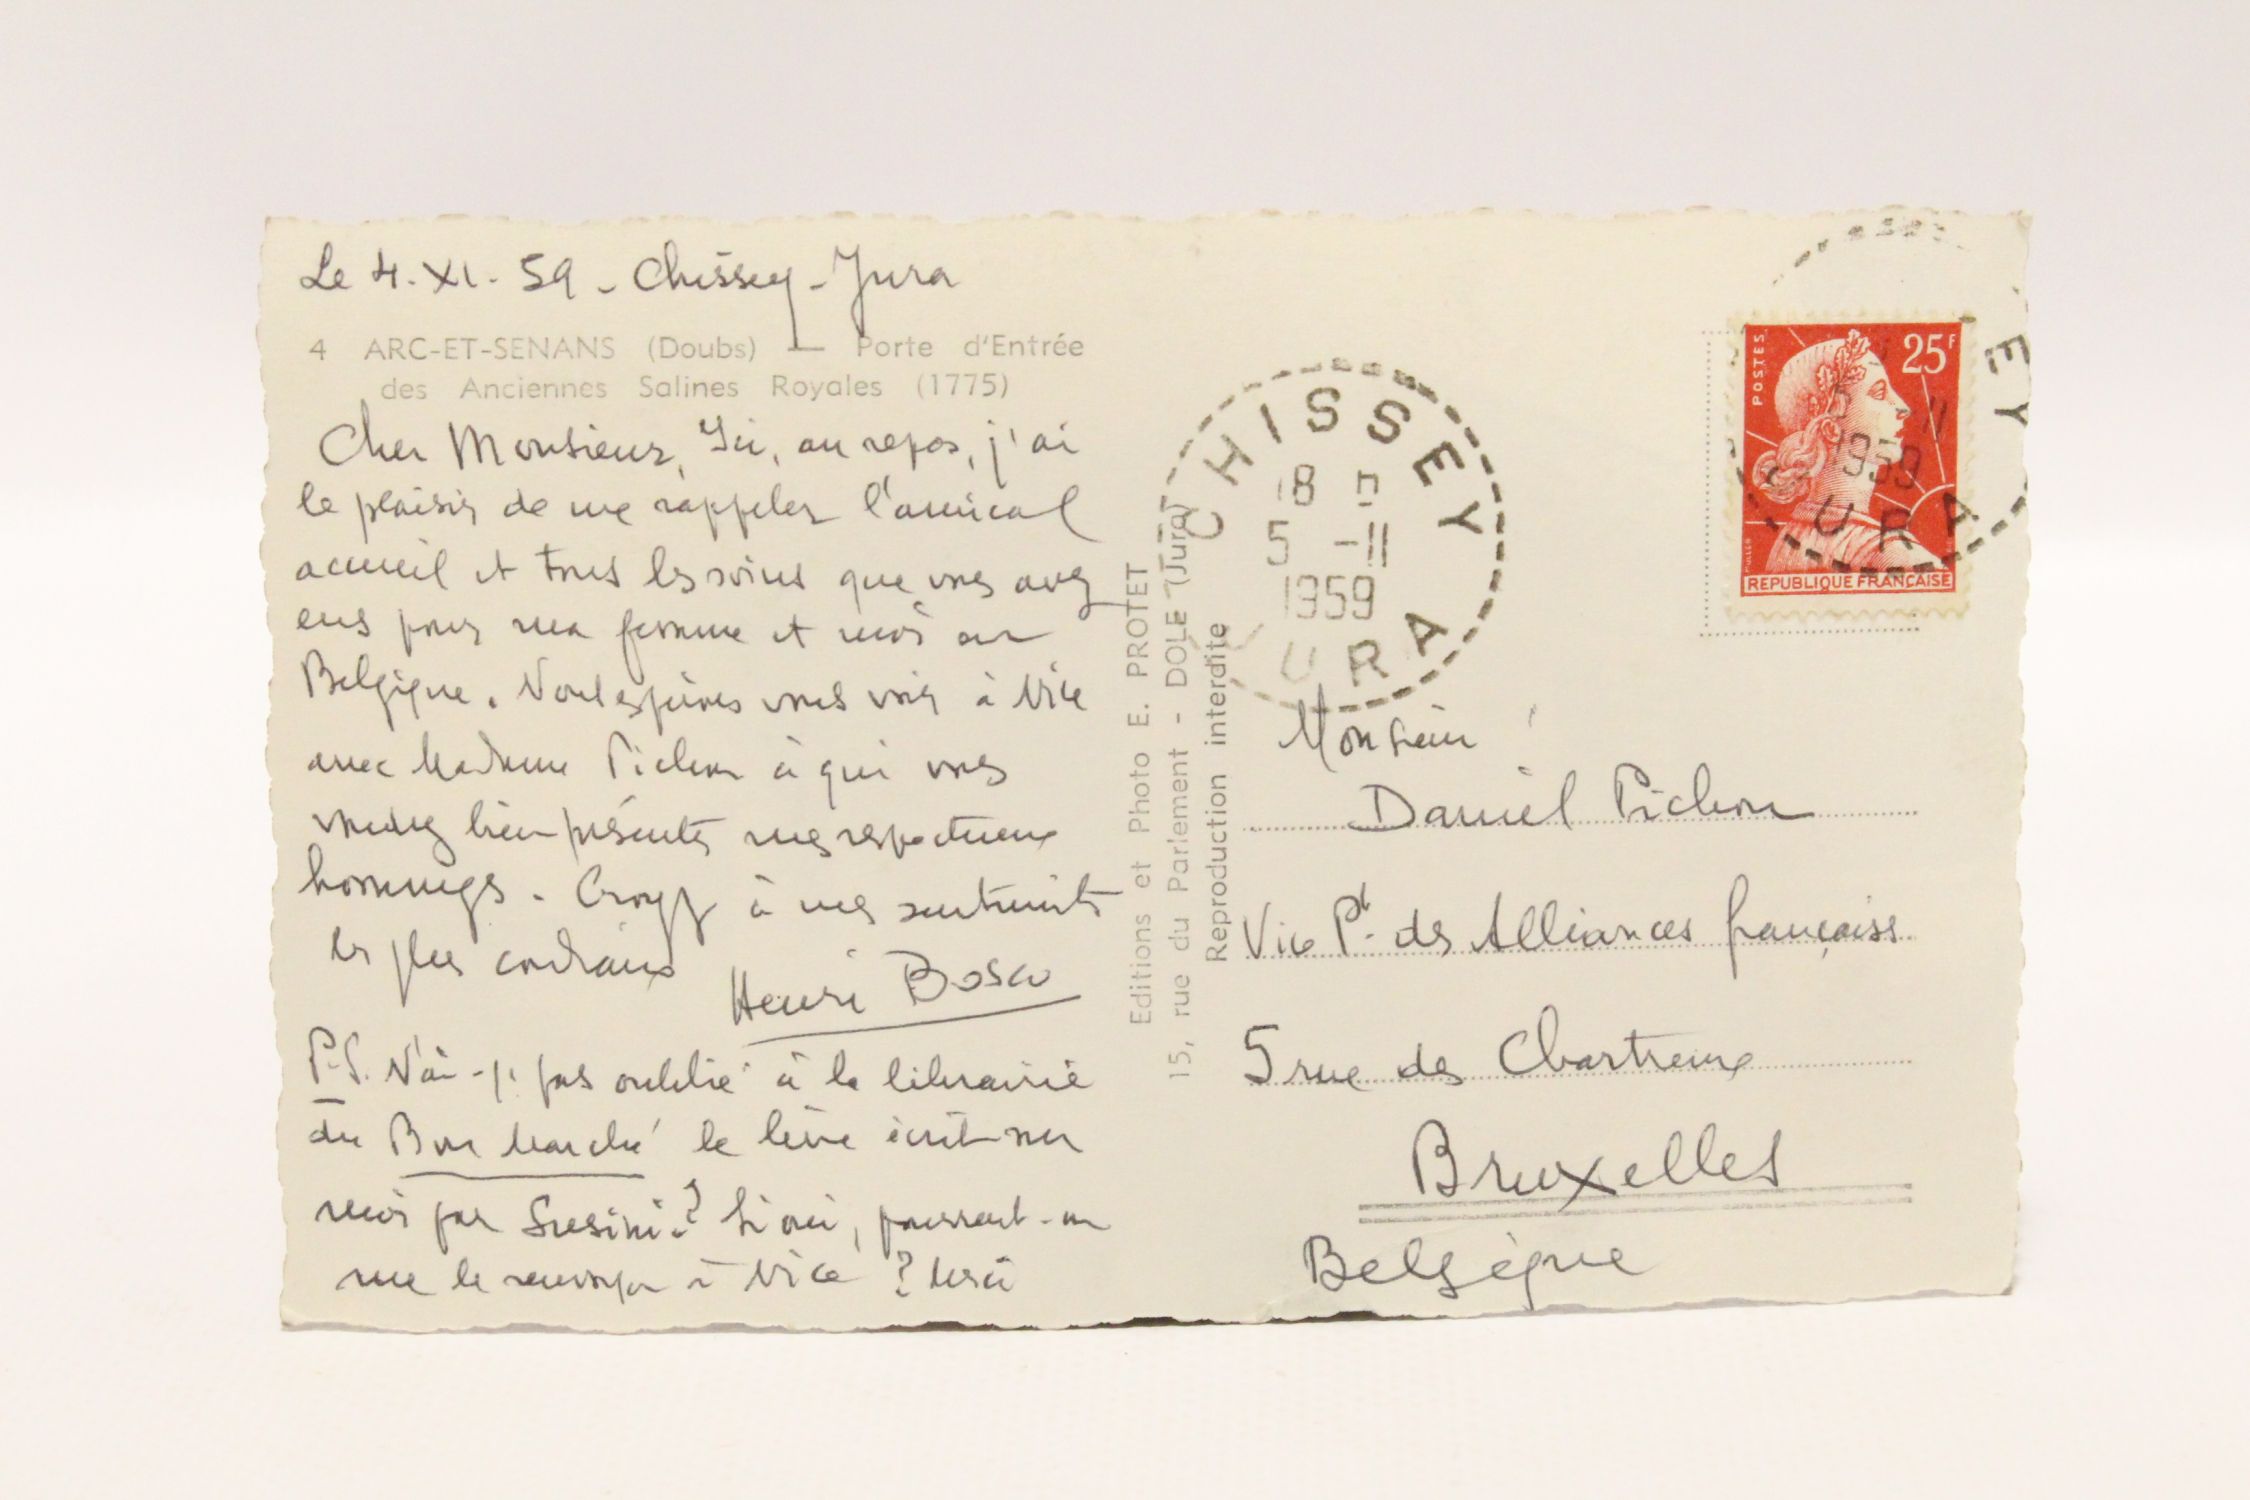 Le 4. XI. 59 - Chissey - Jura
4 ARC-ET-SENANS (Doubs) — Porte d'Entrée
des Anciennes Salines Royales (1775)
Cher Monsieur, Ici, au repos, j'ai
le plaisir de me rappeler l'amical
accueil et tous les soins que vous avez
eus pour ma femme et moi en
Belgique. Nous espérons vous voir à Nice
avec Madame Pichon à qui vous
voudrez bien présenter mes respectueux
hommages. Croyez à mes sentiments
les plus cordiaux
Henri Bosco
P.S. N'ai-je pas oublié à la librairie
du Bon Marché le livre écrit sur
moi par Susini? Si oui, pourrait-on
me le renvoyer à Nice? Merci
Editions et Photo E. PROTET
15, rue du Parlement - DOLE (Jura)
Reproduction interdite
CHISSEY
18 H
5 -11
1959
JURA
POSTES
25F
MULLER
REPUBLIQUE FRANÇAISE
EY
5 -11
1959
URA
Monsieur
Daniel Pichon
Vice Pt. des Alliances françaises
5 rue des Chartreux
Bruxelles
Belgique